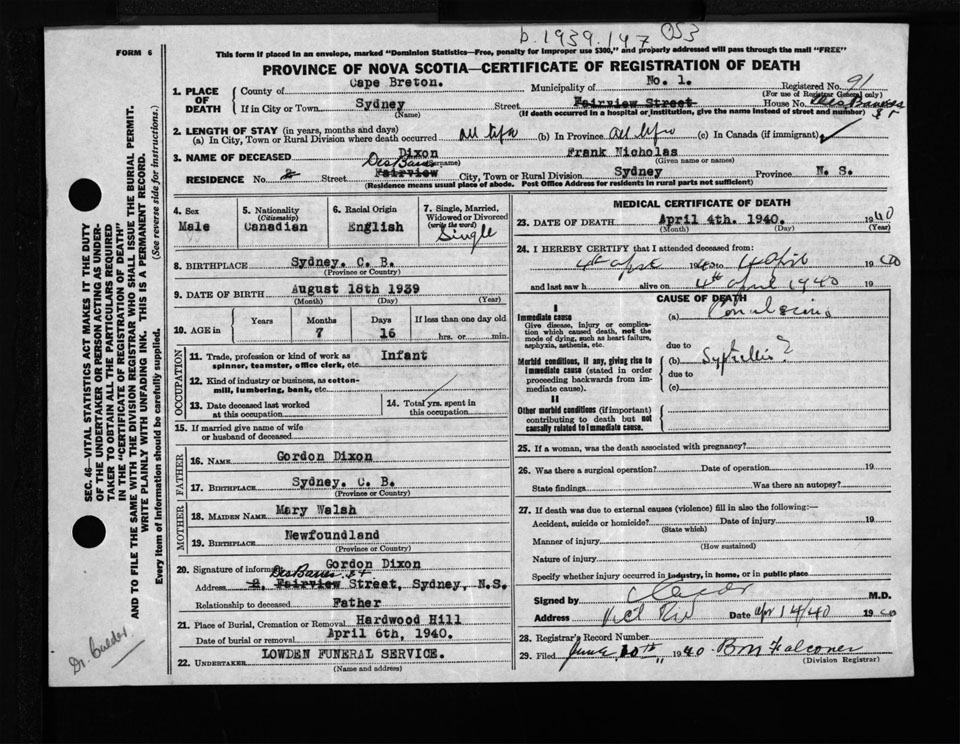 b. 1939. 147 053
FORM 6
This form if placed in an envelope, marked "Dominion Statistics—Free, penalty for improper use $300," and properly addressed will pass through the mail "FREE"
PROVINCE OF NOVA SCOTIA—CERTIFICATE OF REGISTRATION OF DEATH
1. PLACE OF DEATH
County of Cape Breton. Municipality of No. 1. Registered No. 91
(For use of Registrar General only)
If in City or Town Sydney Street Fairview Street House No. DesBarres St
(Name) (If death occurred in a hospital or institution, give the name instead of street and number)
2. LENGTH OF STAY (in years, months and days)
(a) In City, Town or Rural Division where death occurred All life (b) In Province All life (c) In Canada (if immigrant)
3. NAME OF DECEASED Dixon Frank Nicholas
(Surname) (Given name or names)
DesBarres
RESIDENCE No. 2 Street Fairview City, Town or Rural Division Sydney Province N. S.
(Residence means usual place of abode. Post Office Address for residents in rural parts not sufficient)
4. Sex Male
5. Nationality (Citizenship) Canadian
6. Racial Origin English
7. Single, Married, Widowed or Divorced (write the word) Single
8. BIRTHPLACE Sydney. C. B.
(Province or Country)
9. DATE OF BIRTH August 18th 1939
(Month) (Day) (Year)
10. AGE in Years Months Days If less than one day old
7 16 hrs. or min.
OCCUPATION
11. Trade, profession or kind of work as spinner, teamster, office clerk, etc. Infant
12. Kind of industry or business, as cotton-mill, lumbering, bank, etc.
13. Date deceased last worked at this occupation
14. Total yrs. spent in this occupation
15. If married give name of wife or husband of deceased
FATHER
16. NAME Gordon Dixon
17. BIRTHPLACE Sydney. C. B.
(Province or Country)
MOTHER
18. MAIDEN NAME Mary Walsh
19. BIRTHPLACE Newfoundland
(Province or Country)
20. Signature of informant Gordon Dixon
DesBarres St
Address 2. Fairview Street, Sydney, N.S.
Relationship to deceased Father
21. Place of Burial, Cremation or Removal Hardwood Hill
Date of burial or removal April 6th, 1940.
22. UNDERTAKER LOWDEN FUNERAL SERVICE.
(Name and address)
MEDICAL CERTIFICATE OF DEATH
23. DATE OF DEATH April 4th. 1940. 1940
(Month) (Day) (Year)
24. I HEREBY CERTIFY that I attended deceased from:
4th April 1940 to 4 April 1940
and last saw h alive on 4th April 1940 19
CAUSE OF DEATH
I
Immediate cause
Give disease, injury or complication which caused death, not the mode of dying, such as heart failure, asphyxia, asthenia, etc.
(a) Convulsions
due to
Morbid conditions, if any, giving rise to immediate cause (stated in order proceeding backwards from immediate cause).
(b) Syphillis ?
due to
(c)
II
Other morbid conditions (if important) contributing to death but not causally related to immediate cause.
25. If a woman, was the death associated with pregnancy?
26. Was there a surgical operation? Date of operation 19
State findings Was there an autopsy?
27. If death was due to external causes (violence) fill in also the following:—
Accident, suicide or homicide? Date of injury 19
(State which)
Manner of injury
(How sustained)
Nature of injury
Specify whether injury occurred in industry, in home, or in public place
Signed by M.D.
Address Date Apr 14/40 1940
28. Registrar's Record Number
29. Filed June 10th, 1940 B M Falconer
(Division Registrar)
SEC. 46—VITAL STATISTICS ACT MAKES IT THE DUTY
OF THE UNDERTAKER OR PERSON ACTING AS UNDER-
TAKER TO OBTAIN ALL THE PARTICULARS REQUIRED
IN THE "CERTIFICATE OF REGISTRATION OF DEATH"
AND TO FILE THE SAME WITH THE DIVISION REGISTRAR WHO SHALL ISSUE THE BURIAL PERMIT.
WRITE PLAINLY WITH UNFADING INK. THIS IS A PERMANENT RECORD.
Every item of information should be carefully supplied. (See reverse side for instructions.)
Dr. Calder